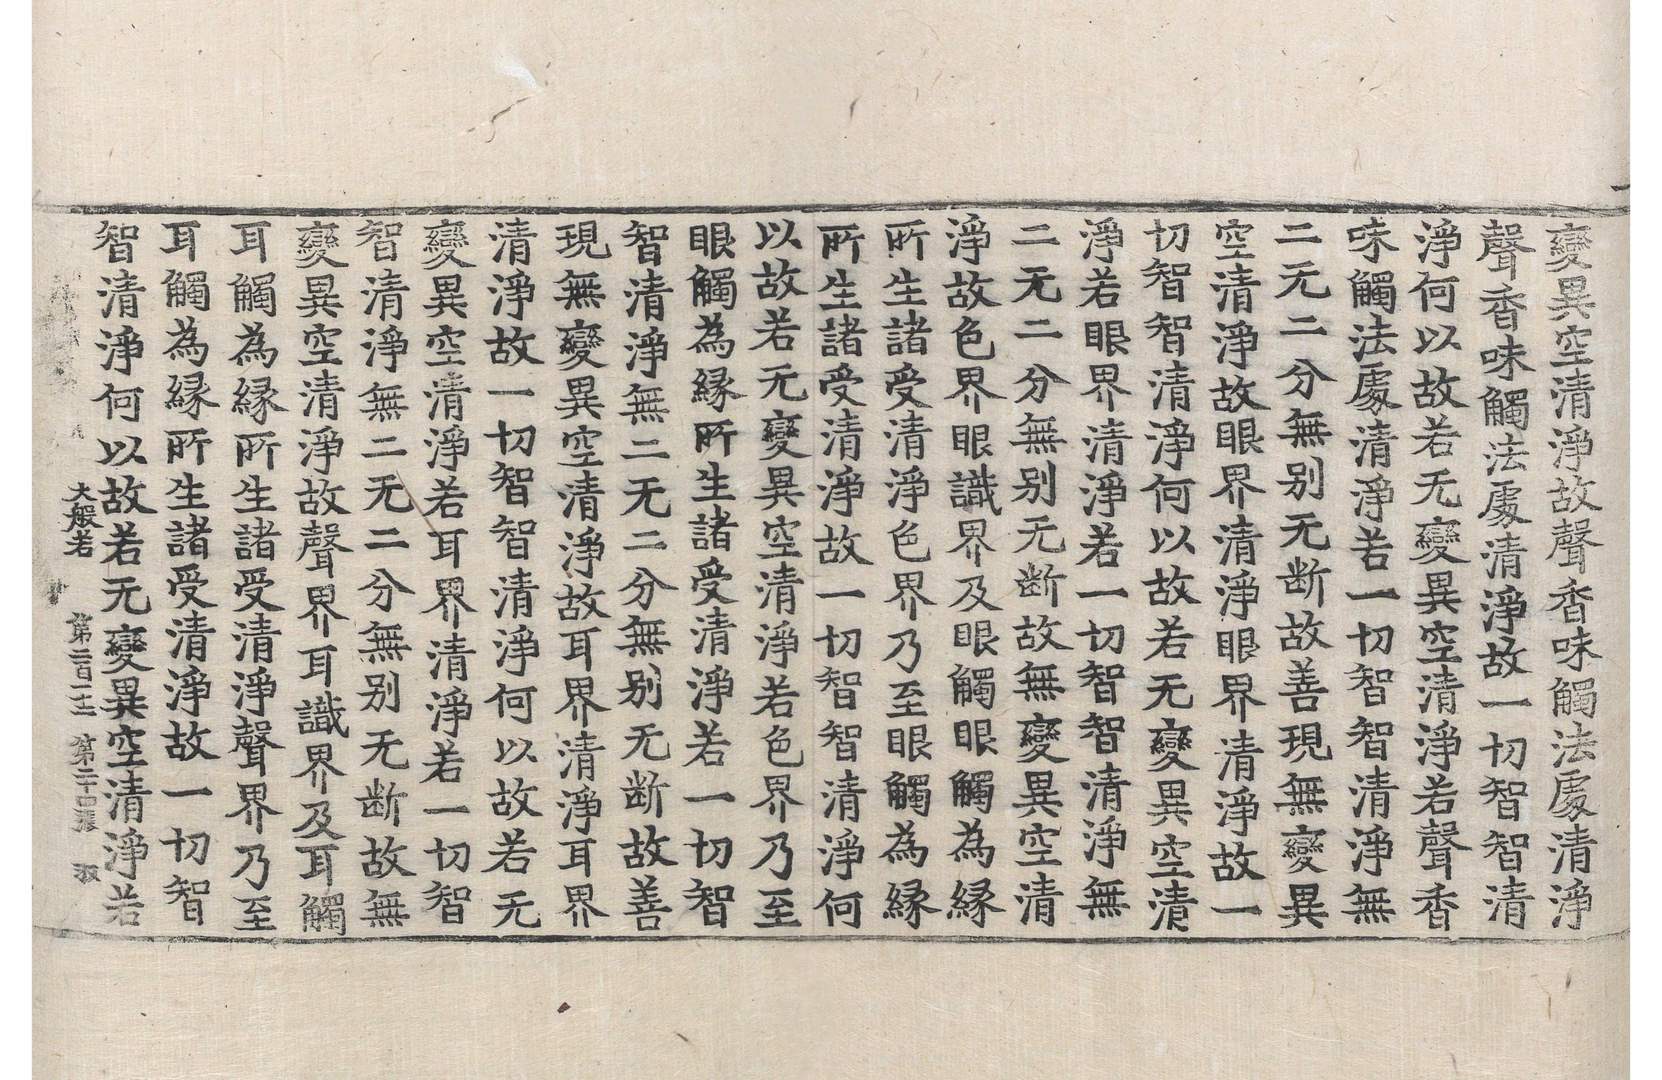 變異空清淨故聲香味觸法處清淨
聲香味觸法處清淨故一切智智清
淨何以故若无變異空清淨若聲香
味觸法處清淨若一切智智清淨無
二无二分無别无断故善現無變異
空清淨故眼界清淨眼界清淨故一
切智智清淨何以故若无變異空清
淨若眼界清淨若一切智智清淨無
二无二分無别无断故無變異空清
淨故色界眼識界及眼觸眼觸為縁
所生諸受清淨色界乃至眼觸為縁
所生諸受清淨故一切智智清淨何
以故若无變異空清淨若色界乃至
眼觸為縁所生諸受清淨若一切智
智清淨無二无二分無别无断故善
現無變異空清淨故耳界清淨耳界
清淨故一切智智清淨何以故若无
變異空清淨若耳界清淨若一切智
智清淨無二无二分無别无断故無
變異空清淨故聲界耳識界及耳觸
耳觸為縁所生諸受清淨聲界乃至
耳觸為縁所生諸受清淨故一切智
智清淨何以故若无變異空清淨若
大般若 第二百一十二 第二十四張